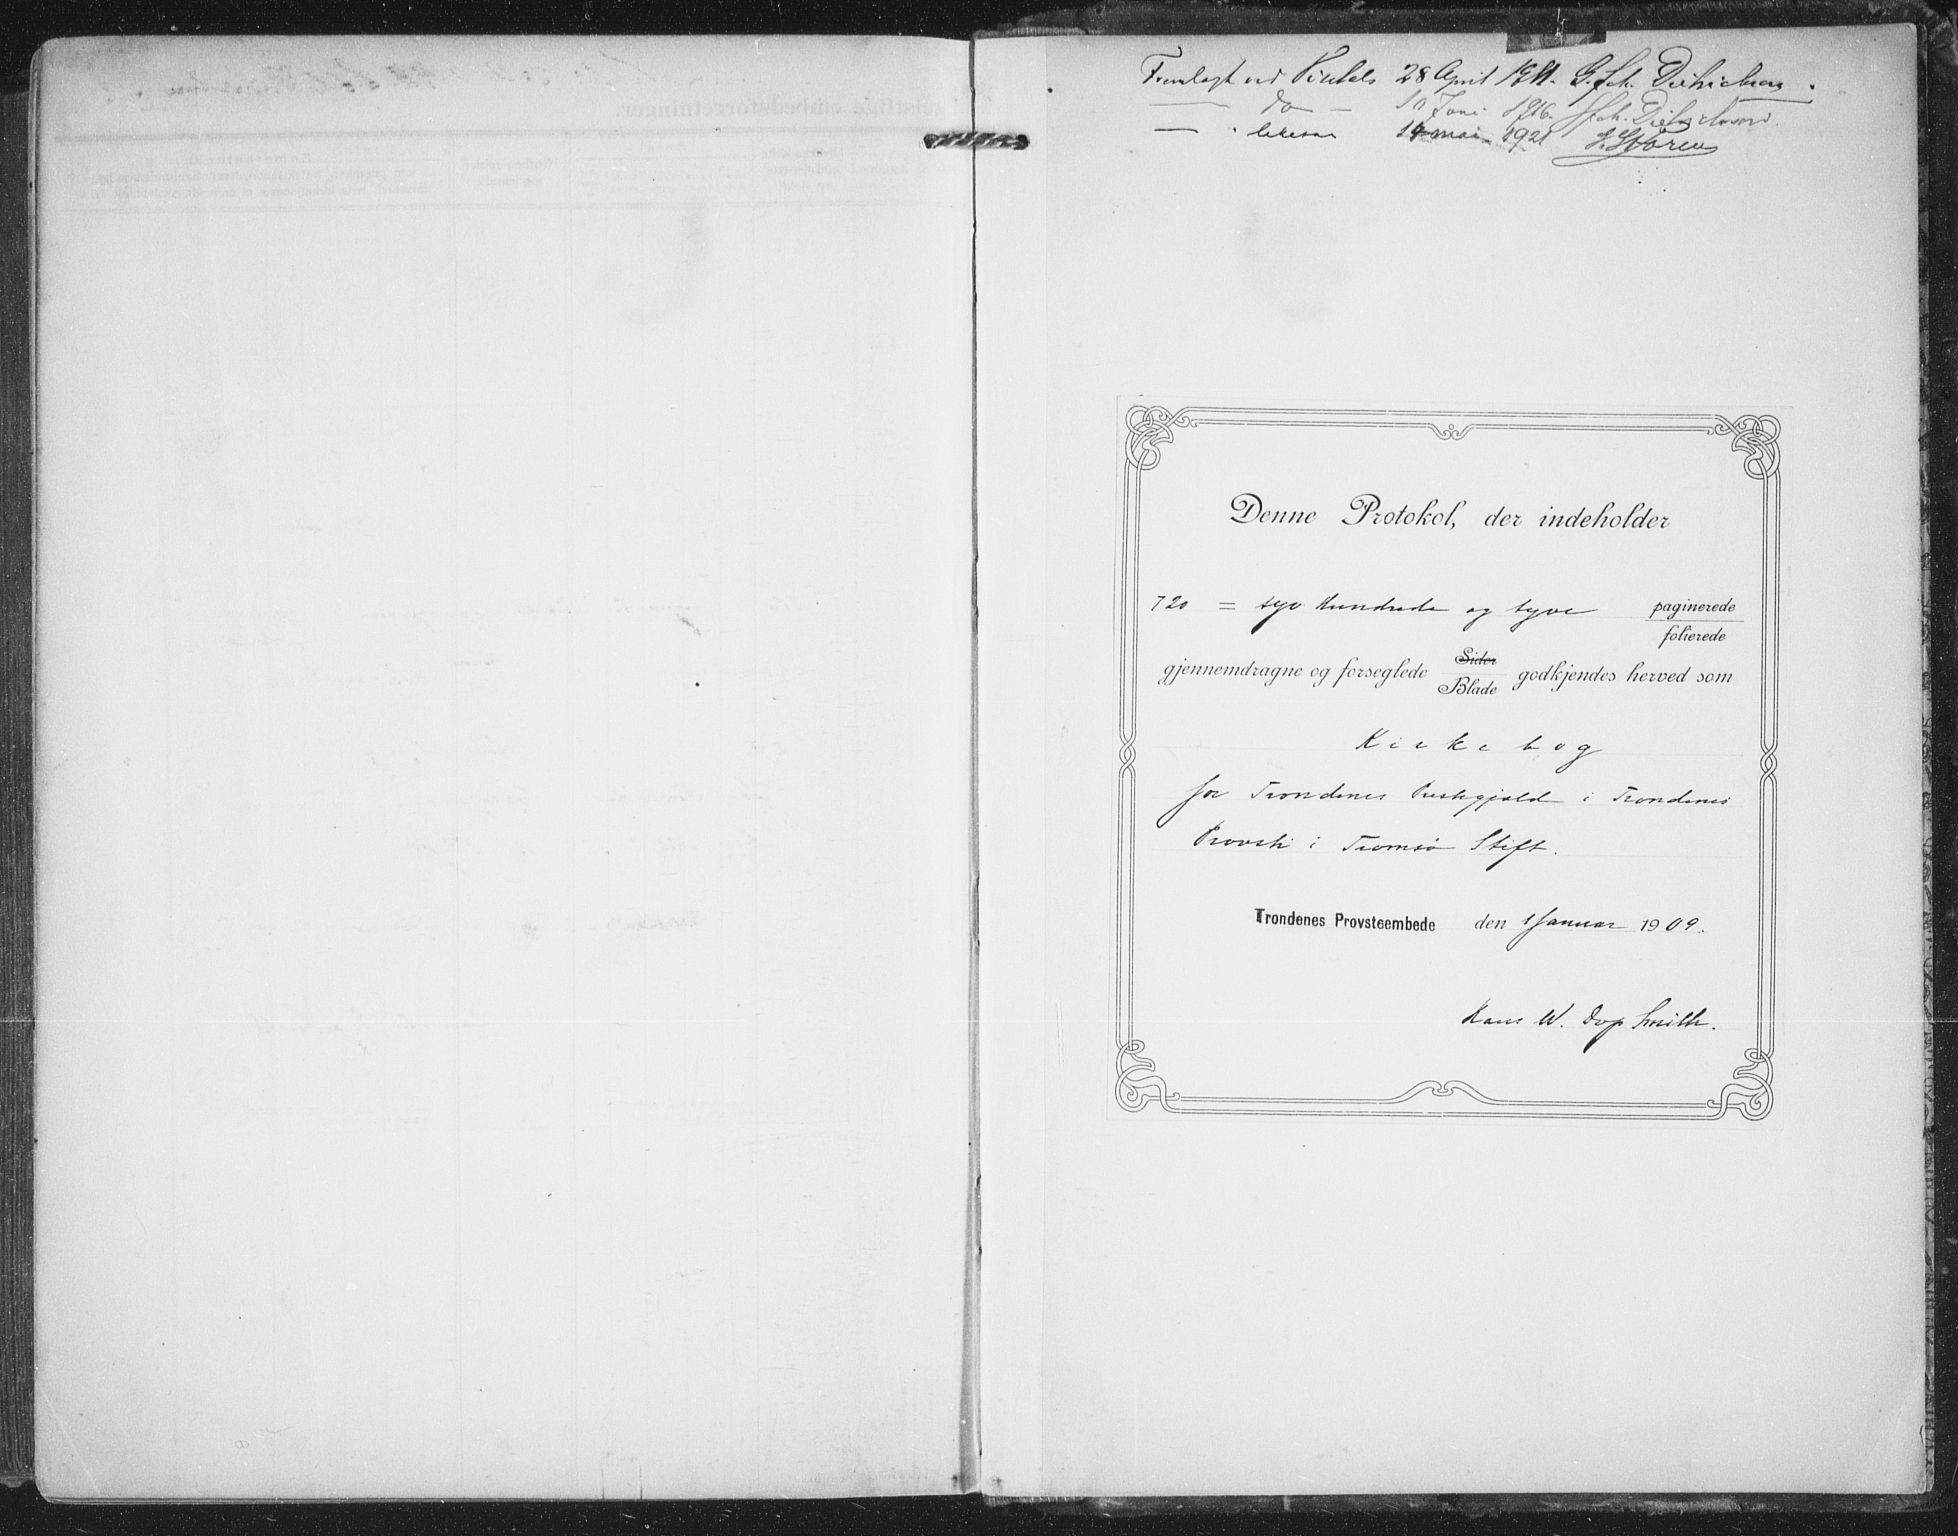 Fremlagt ved Visitats 28 April 1911. G. Sch. Diitrichson.
— do — 10 Juni 1916. Sch.
— likesaa 14 mai 1921 S. Støren
Denne Protokol, der indeholder
720 = syv hundrede og tyve paginerede
folierede
gjennemdragne og forseglede Sider
Blade godkjendes herved som
Kirkebog
for Trondenes Prestegjæld i Trondenes
Provsti i Tromsø Stift.
Trondenes Provsteembede den 1 Januar 1909.
Hans W. Dop Smith.